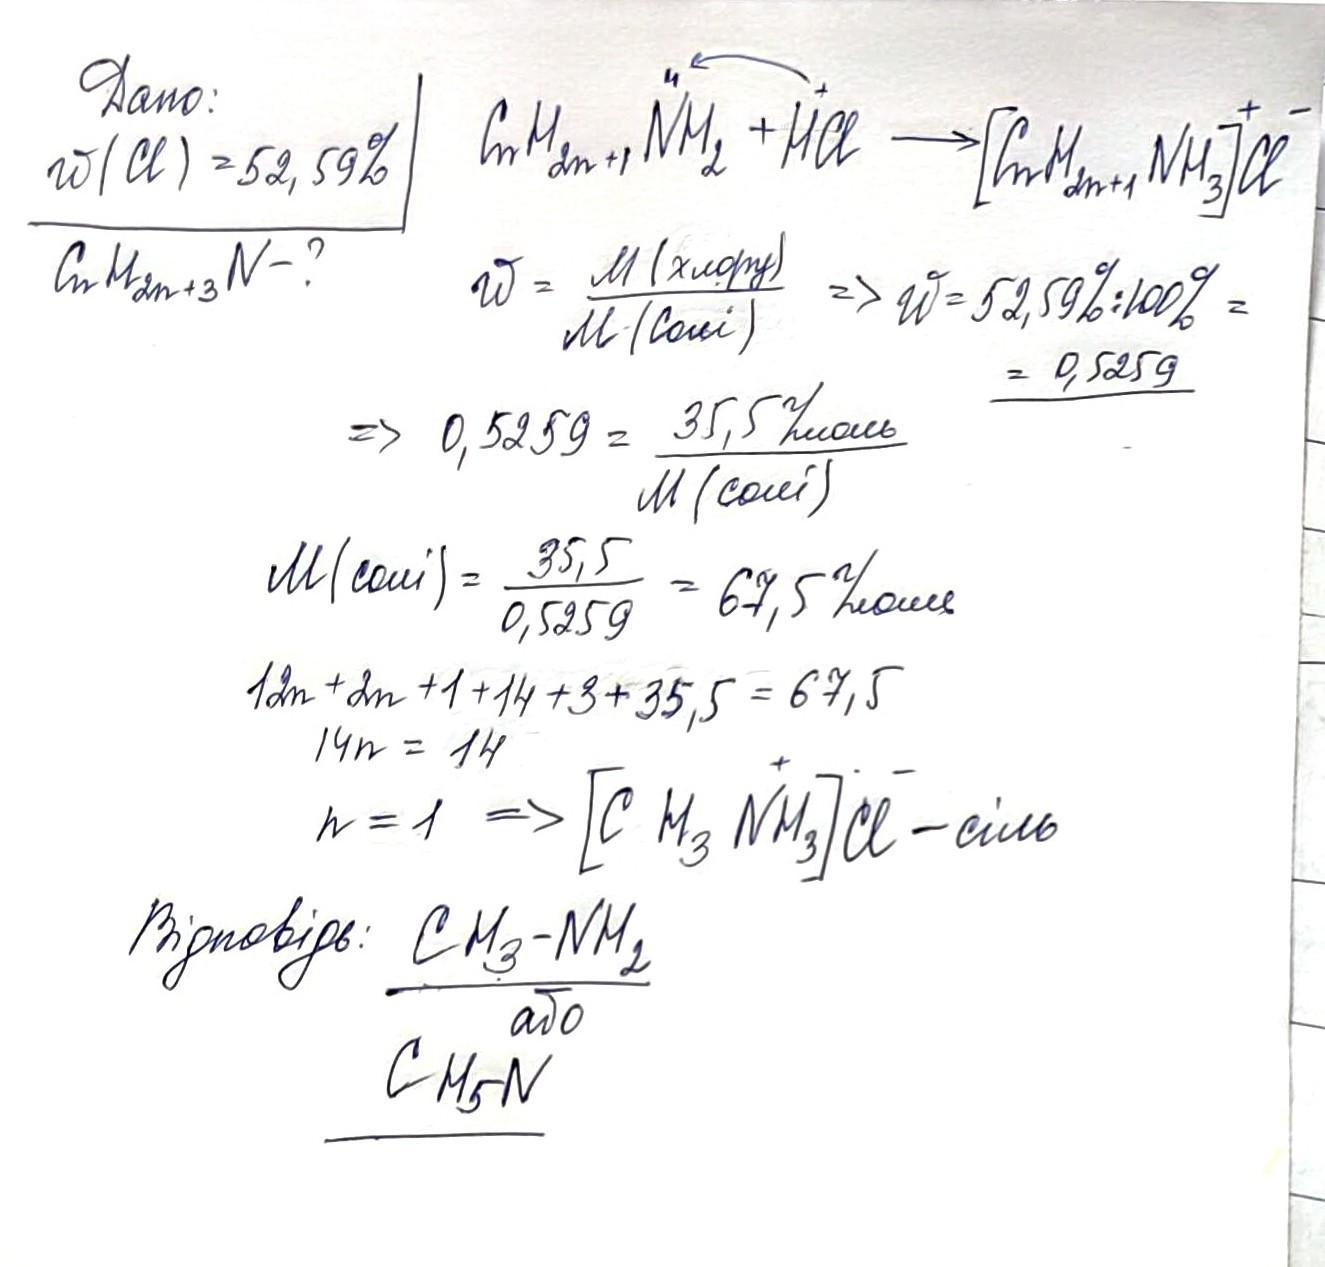 Дано:
w(Cl) = 52,59%
CnH2n+3N - ?
CnH2n+1N̈H2 + HCl → [CnH2n+1NH3]⁺Cl⁻
w = M(хлору) / M(солі) => w = 52,59% : 100% =
= 0,5259
=> 0,5259 = 35,5 г/моль / M(солі)
M(солі) = 35,5 / 0,5259 = 67,5 г/моль
12n + 2n + 1 + 14 + 3 + 35,5 = 67,5
14n = 14
n = 1 => [CH3NH3]⁺Cl⁻ - сіль
Відповідь: CH3-NH2
або
CH5N